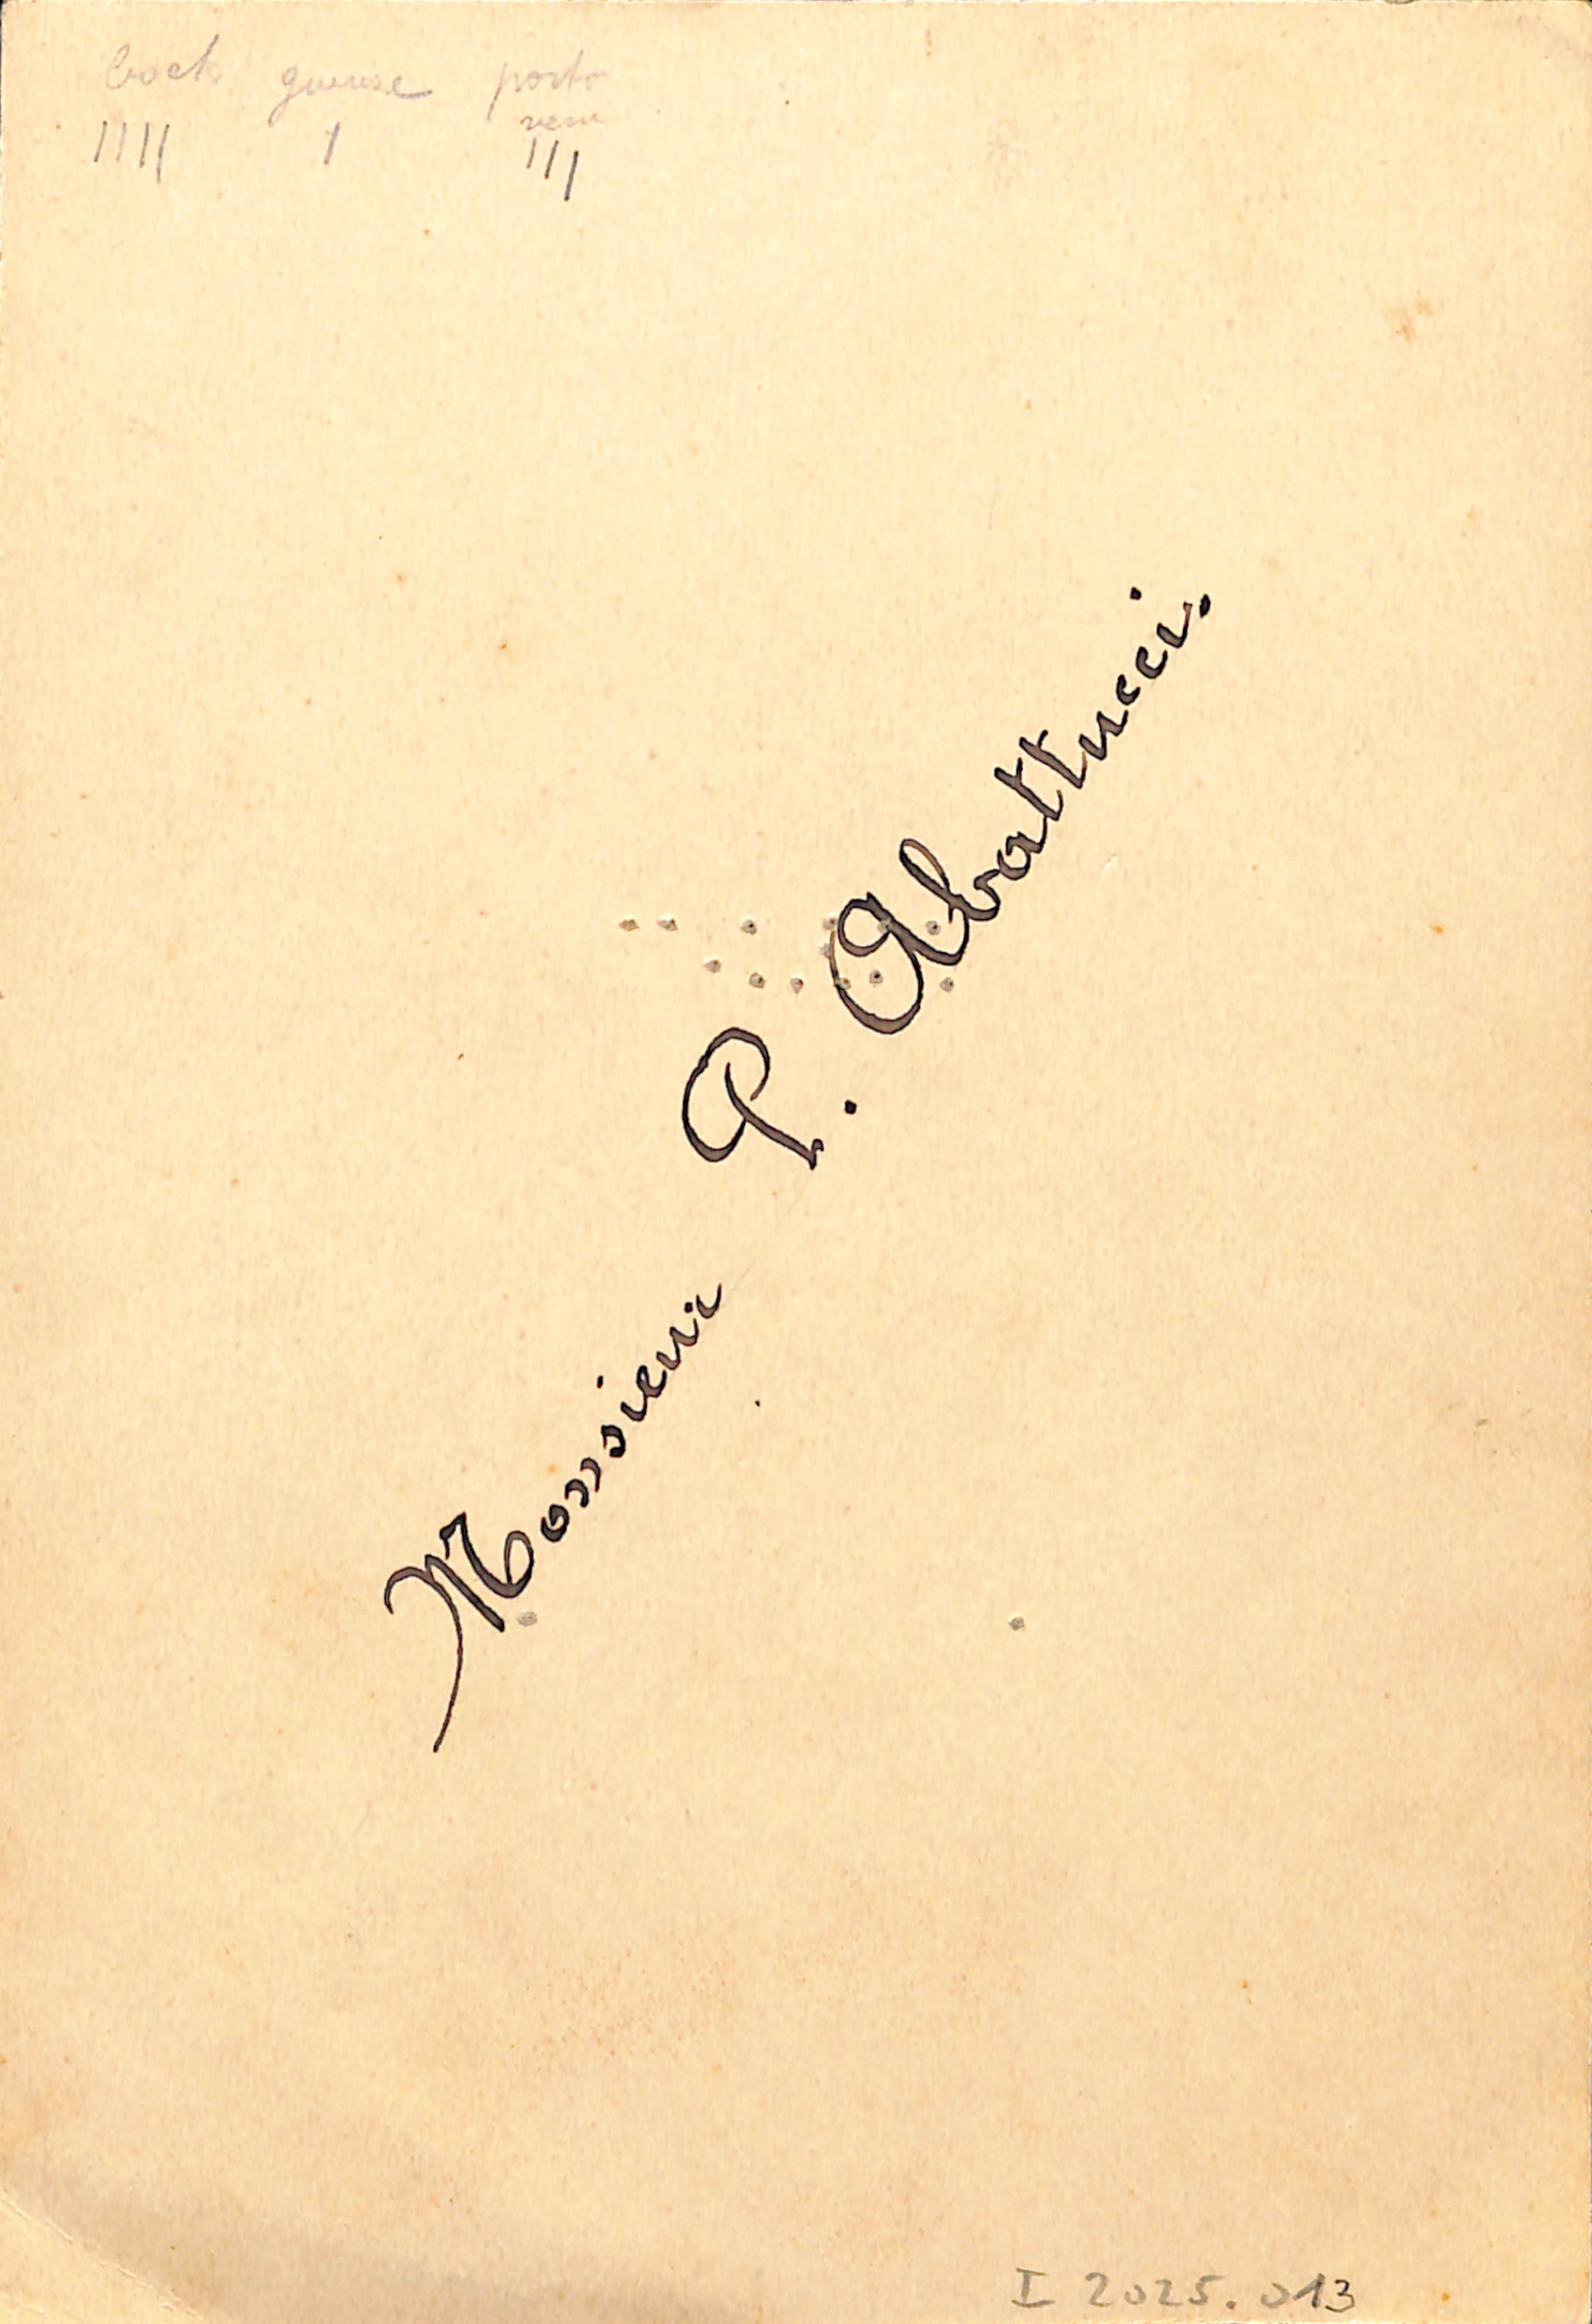 bock gueuse porto
verre
IIII I III
Monsieur P. Abattucci.
I 2025.013